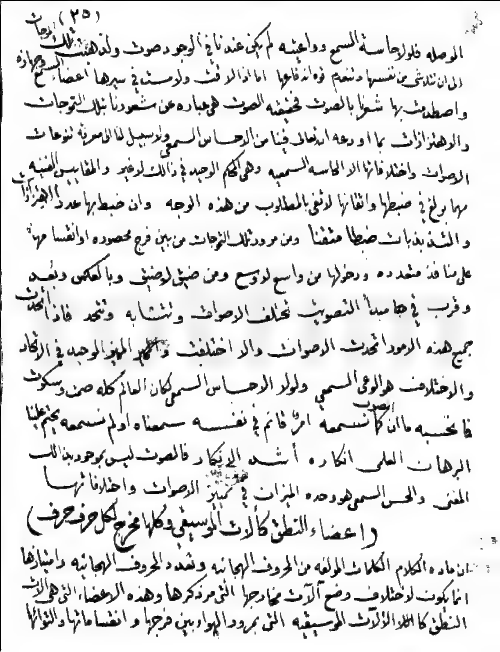 (٢٥)
الموصله فلولا حاسة السمع وواعيته لم يكن عندنا في الوجود صوت ولذهبت تلك التموجات
الى ان تتلاشى من نفسها وتنعدم قوة اندفاعها اما اذا لاقت ولامست في سيرها اعضاء السمع
واصطدمت بها شعرنا بالصوت فحقيقة الصوت هي عباره عن شعورنا بتلك التموجات
والاهتزازات بما اودعه الله تعالى فينا من الاحساس السمعي ولا سبيل لنا الى معرفة تنوعات
الاصوات واختلافاتها الا الحاسه السمعيه وهي الحكم الوحيد في ذالك لا غير والمقاييس الفنيه
مهما بولغ في ضبطها واتقانها لا تفي بالمطلوب من هذه الوجه وان ضبط بها عدد الاهتزازات
والتذبذبات ضبطا متقنا ومن مرور تلك التموجات من بين فرج محصوره او انقسامها
على منافذ متعدده ودخولها من واسع لاوسع ومن ضيق لاضيق وبالعكس وبعد
وقرب في جا مبدأ التصويت تختلف الاصوات وتتشابه وتتحد فاذا اتحدت
جميع هذه الامور اتحدت الاصوات والا اختلفت والحكم المميز الوحيد في الاتحاد
والاختلاف هو الوعي السمعي ولولا الاحساس السمعي لكان العالم كله صمت وسكوت
فما نحسبه من ان الصوت كما نسمعه امرا قائم في نفسه سمعناه او لم نسمعه يحتم علينا
البرهان العلمي انكاره أشد الانكار فالصوت ليس بموجود بذالك
المعنى والحس السمعي هو وحده الميزان في تمييز الاصوات واختلافاتها
(اعضاء النطق كآلات الموسيقي وكلها مخرج لكل حرف حرف)
ان ماده الكلام الكلمات المؤلفه من الحروف الهجائيه وتعدد الحروف الهجائيه وامتيازها
انما يكون لاختلاف وضع آلات مخارجها التي مر ذكرها وهذه الاعضاء التي هي آلات
النطق كالآلات الموسيقيه التي بمرور الهواء بين فرجها وانقساماتها والتوائها